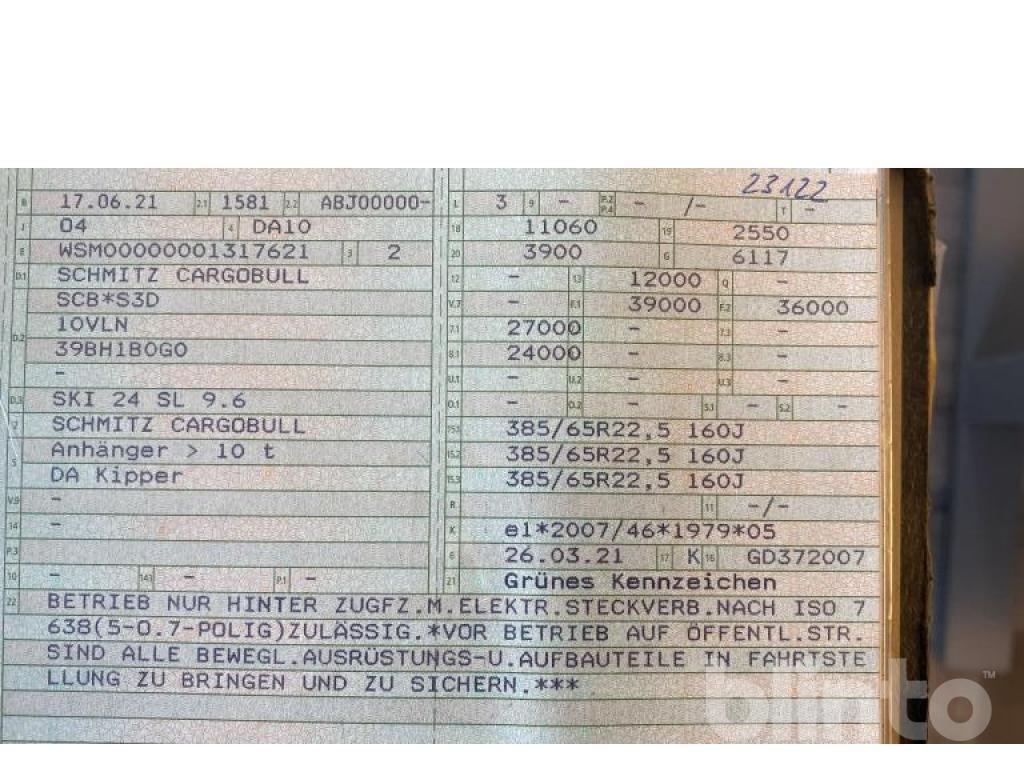 23122
B 17.06.21 2.1 1581 2.2 ABJ00000- L 3 9 - P.2 P.4 - /- T -
J 04 4 DA10 18 11060 19 2550
E WSM00000001317621 3 2 20 3900 G 6117
D.1 SCHMITZ CARGOBULL 12 - 13 12000 Q -
SCB*S3D V.7 - F.1 39000 F.2 36000
D.2 10VLN 7.1 27000 - 7.3 -
39BH1B0G0 8.1 24000 - 8.3 -
- U.1 - U.2 - U.3 -
D.3 SKI 24 SL 9.6 O.1 - O.2 - S.1 - S.2 -
2 SCHMITZ CARGOBULL 15.1 385/65R22,5 160J
5 Anhänger > 10 t 15.2 385/65R22,5 160J
DA Kipper 15.3 385/65R22,5 160J
V.9 - R 11 -/-
14 - K e1*2007/46*1979*05
P.3 6 26.03.21 17 K 16 GD372007
10 - 14.1 - P.1 - 21 Grünes Kennzeichen
22 BETRIEB NUR HINTER ZUGFZ.M.ELEKTR.STECKVERB.NACH ISO 7
638(5-O.7-POLIG)ZULÄSSIG.*VOR BETRIEB AUF ÖFFENTL.STR.
SIND ALLE BEWEGL.AUSRÜSTUNGS-U.AUFBAUTEILE IN FAHRTSTE
LLUNG ZU BRINGEN UND ZU SICHERN.***
blinto™